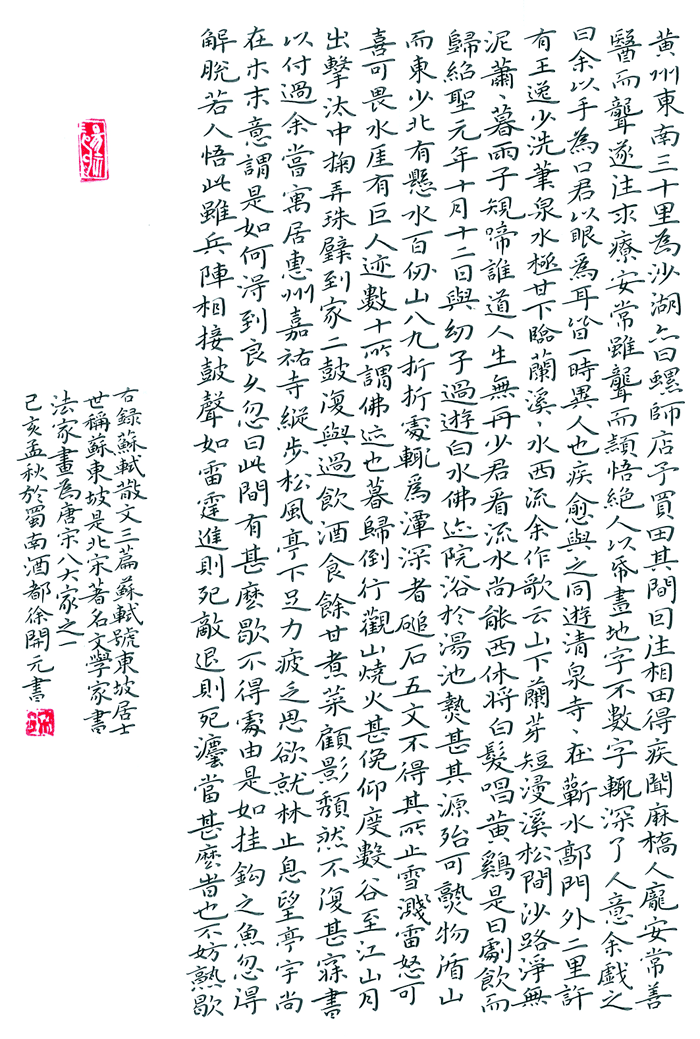 黃州東南三十里為沙湖亦曰螺師店予買田其間因往相田得疾聞麻橋人龐安常善
醫而聾遂往求療安常雖聾而穎悟絕人以帋畫地字不數字輒深了人意余戲之
曰余以手為口君以眼為耳皆一時異人也疾愈與之同遊清泉寺、在蘄水郭門外二里許
有王逸少洗筆泉水極甘下臨蘭溪、水西流余作歌云山下蘭芽短浸溪松間沙路淨無
泥蕭、暮雨子規啼誰道人生無再少君看流水尚能西休將白髮唱黃鷄是日劇飲而
歸紹聖元年十月十二日與幼子過遊白水佛迹院浴於湯池熱甚其源殆可熟物循山
而東少北有懸水百仞山八九折折處輒為潭深者磓石五丈不得其所止雪濺雷怒可
喜可畏水厓有巨人迹數十所謂佛迹也暮歸倒行觀山燒火甚俛仰度數谷至江山月
出擊汰中掬弄珠璧到家二鼓復與過飲酒食餘甘煮菜顧影頹然不復甚寐書
以付過余嘗寓居惠州嘉祐寺縱步松風亭下足力疲乏思欲就林止息望亭宇尚
在木末意謂是如何得到良久忽曰此間有甚麼歇不得處由是如挂鈎之魚忽得
解脫若人悟此雖兵陣相接鼓聲如雷霆進則死敵退則死灋當甚麼旹也不妨熟歇
右錄蘇軾散文三篇蘇軾號東坡居士
世稱蘇東坡是北宋著名文學家書
法家畫為唐宋八大家之一
己亥孟秋於蜀南酒都徐開元書